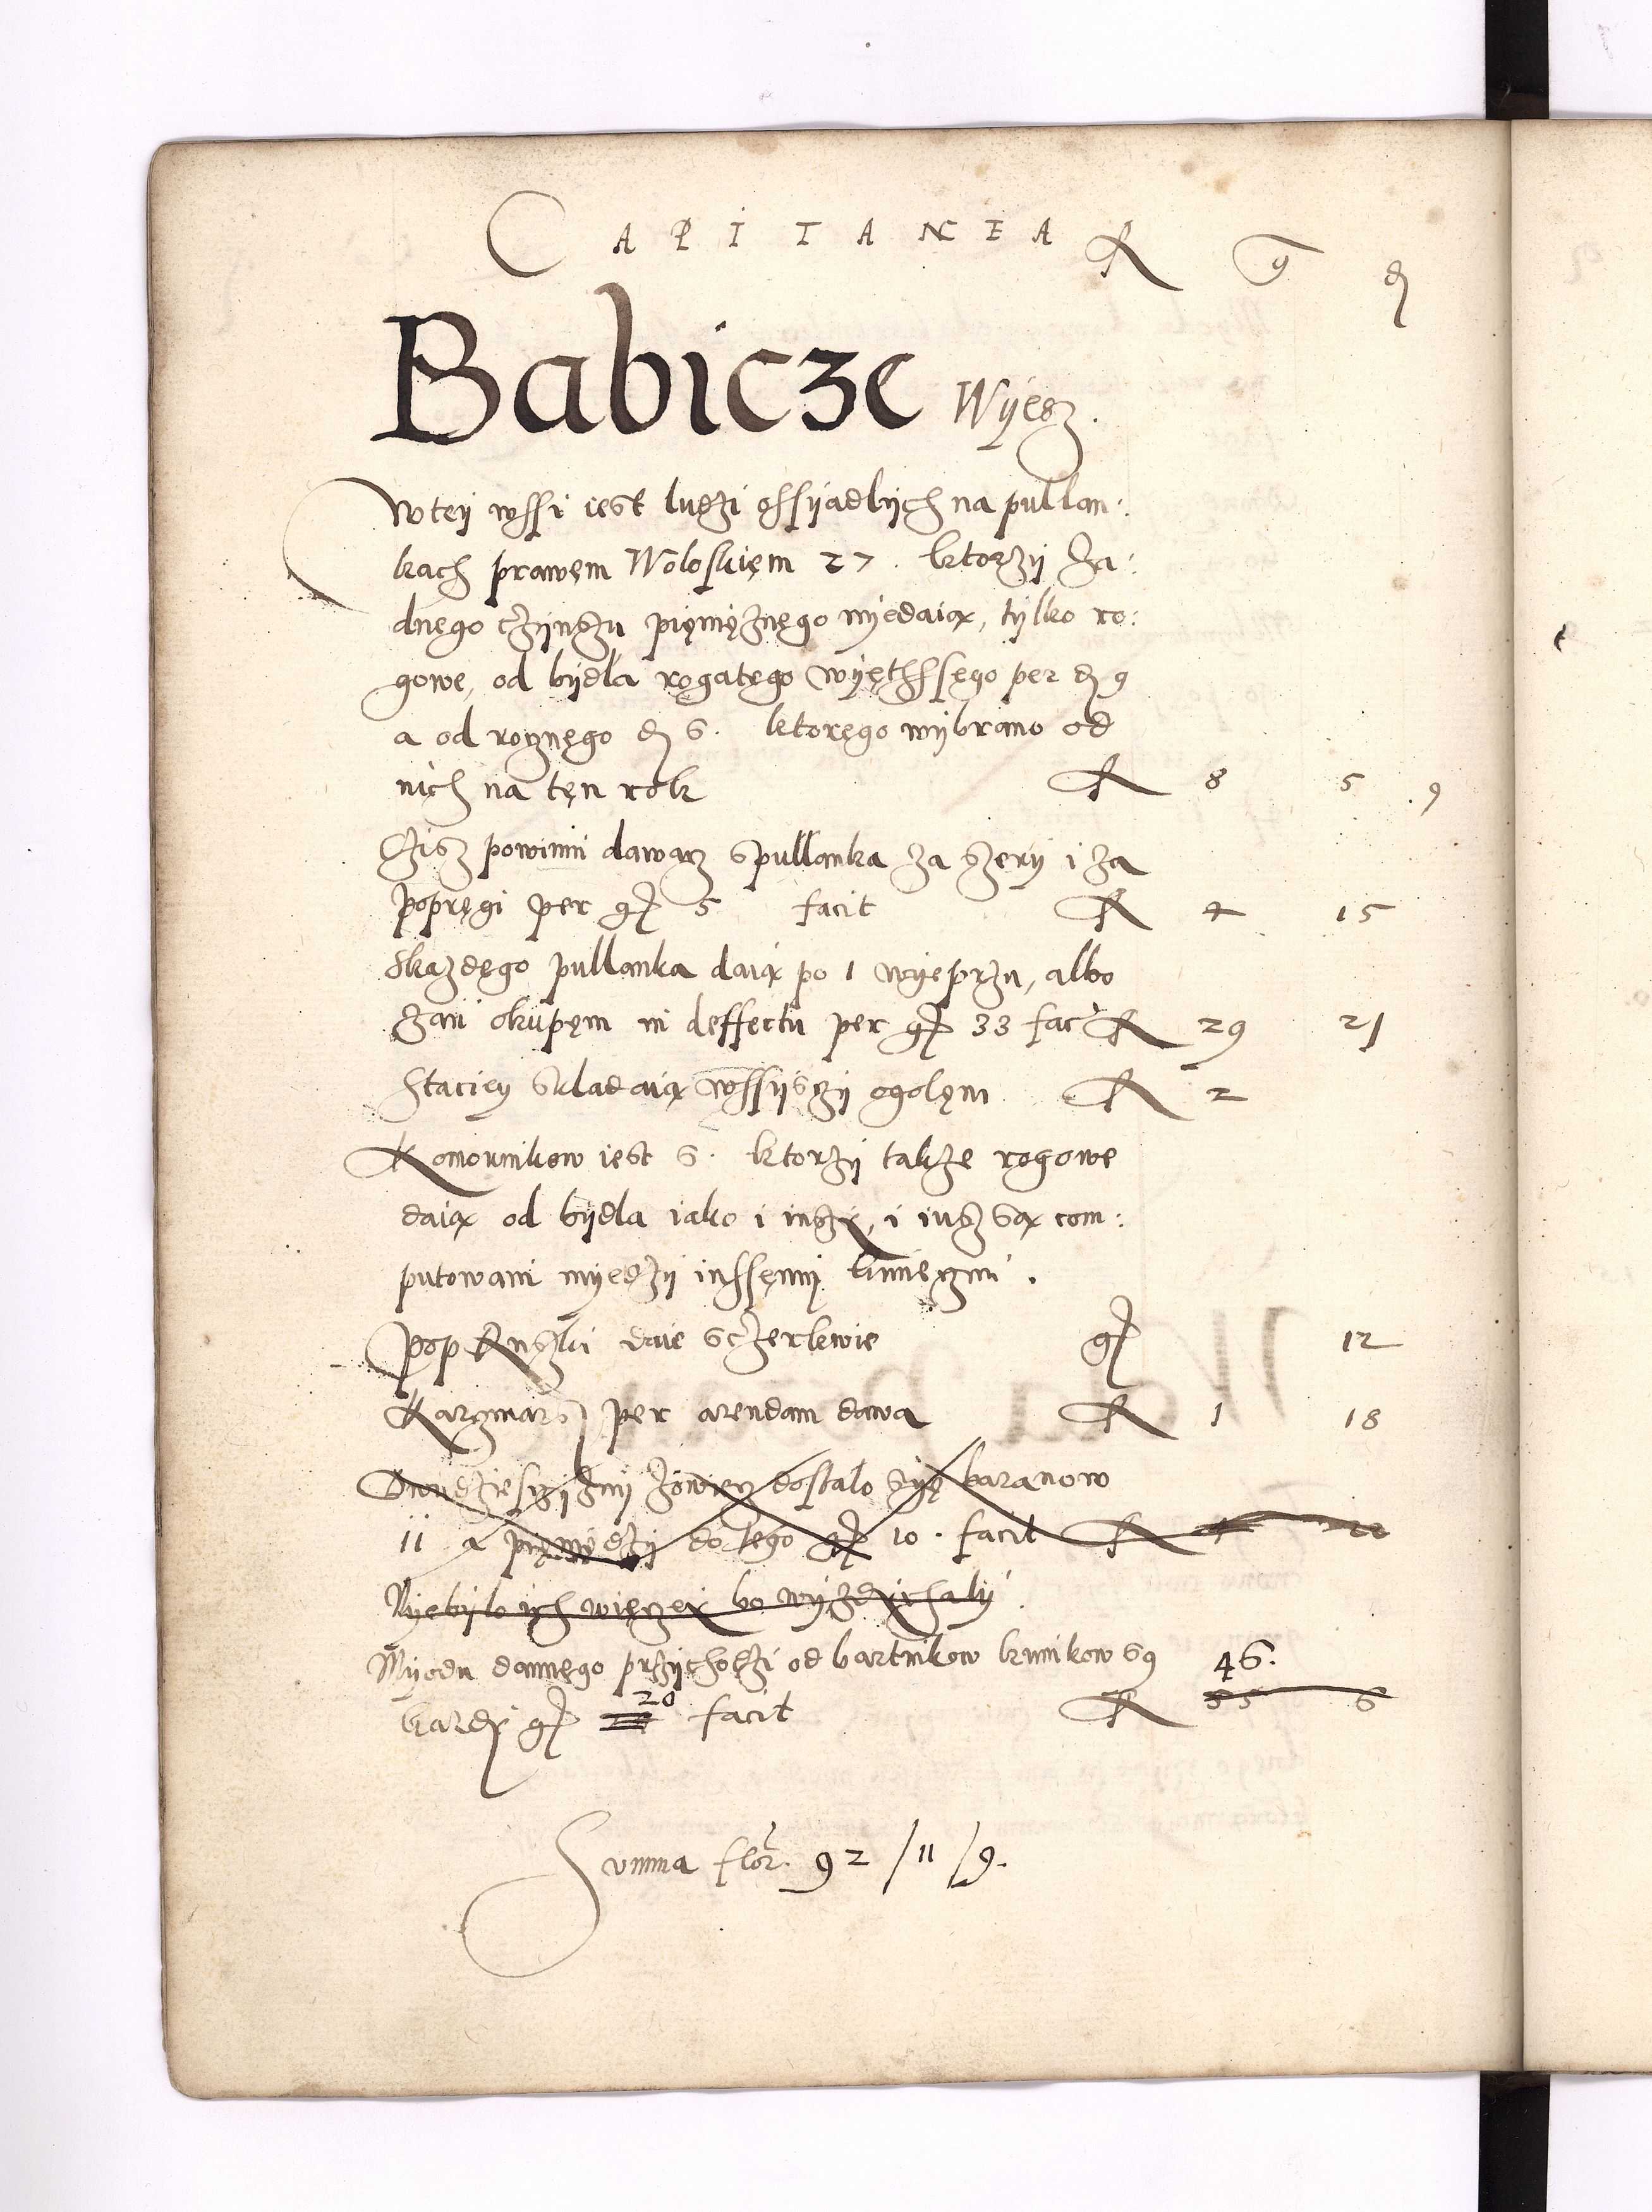 CAPITANEA fl g d
Babicze Wyesz.
W tey wssi iest ludzi ossyadlych na pullan:
kach prawęm Wołoskięm 27. ktorzy za:
dnęgo czynszu pięnięznęgo nyedaią, tylko ro:
gowe, od bydla rogatęgo wyęthssęgo per d 9
a od rocznęgo d 6. ktoręgo wybrano od
nich na tęn rok fl 8 5 9
Czisz powinni dawacz s pullanka za szery i za
popręgi per g 5 facit fl 4 15
Skazdęgo pullanka daią po 1 wyeprzu, albo
zań okupęm in deffectu per g 33 fac fl 29 21
Staciey skladaią wssyisczy ogolęm fl 2
Komornikow iest 6. ktorzy takze rogowe
daią od bydla iako i inszy, i iusz są com:
putowani myedzy inssęmy kmieczmi.
Pop Ruszki daie s czerkwie g 12
Karczmarz per arendam dawa fl 1 18
Owudziesczyzny zowiey dostalo syę baranow
11 a pięnędzy do tego g 10. facit fl
Nyebylo ych więczey bo wyzdychaly.
Myodu dannęgo przychodzi od bartnikow kunikow 69 46.
kazdy g 20 facit fl 55 6
Summa flor. 92 / 11 / 9.